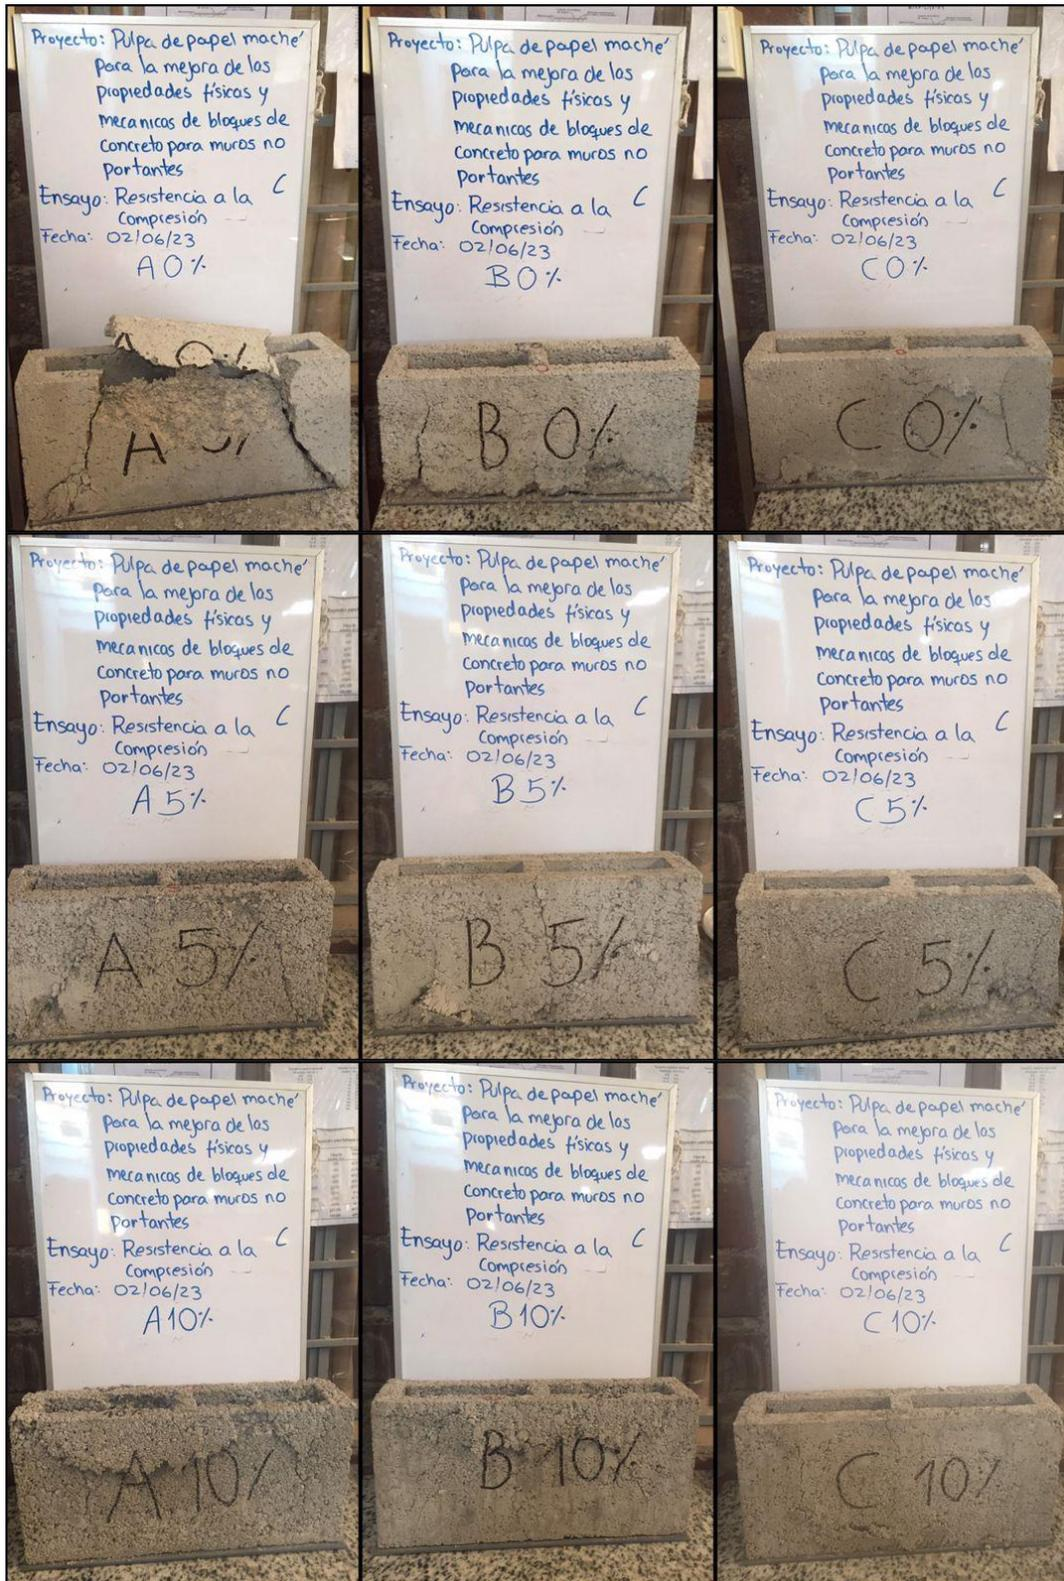 Proyecto: Pulpa de papel maché
para la mejora de las
propiedades físicas y
mecanicas de bloques de
Concreto para muros no
portantes
Ensayo: Resistencia a la C
Compresión
Fecha: 02/06/23
A 0%
A 0%
A
Proyecto: Pulpa de papel maché
para la mejora de las
propiedades físicas y
mecanicas de bloques de
Concreto para muros no
portantes
Ensayo: Resistencia a la C
Compresión
Fecha: 02/06/23
B 0%
B 0%
Proyecto: Pulpa de papel maché
para la mejora de las
propiedades físicas y
mecanicas de bloques de
Concreto para muros no
portantes
Ensayo: Resistencia a la C
Compresión
Fecha: 02/06/23
C 0%
C 0%
Proyecto: Pulpa de papel maché
para la mejora de las
propiedades físicas y
mecanicas de bloques de
Concreto para muros no
portantes
Ensayo: Resistencia a la C
Compresión
Fecha: 02/06/23
A 5%
A 5%
Proyecto: Pulpa de papel maché
para la mejora de las
propiedades físicas y
mecanicas de bloques de
Concreto para muros no
portantes
Ensayo: Resistencia a la C
Compresión
Fecha: 02/06/23
B 5%
B 5%
Proyecto: Pulpa de papel maché
para la mejora de las
propiedades físicas y
mecanicas de bloques de
Concreto para muros no
portantes
Ensayo: Resistencia a la C
Compresión
Fecha: 02/06/23
C 5%
C 5%
Proyecto: Pulpa de papel maché
para la mejora de las
propiedades físicas y
mecanicas de bloques de
Concreto para muros no
portantes
Ensayo: Resistencia a la C
Compresión
Fecha: 02/06/23
A 10%
A 10%
Proyecto: Pulpa de papel maché
para la mejora de las
propiedades físicas y
mecanicas de bloques de
Concreto para muros no
portantes
Ensayo: Resistencia a la C
Compresión
Fecha: 02/06/23
B 10%
B 10%
Proyecto: Pulpa de papel maché
para la mejora de las
propiedades físicas y
mecanicas de bloques de
Concreto para muros no
portantes
Ensayo: Resistencia a la C
Compresión
Fecha: 02/06/23
C 10%
C 10%